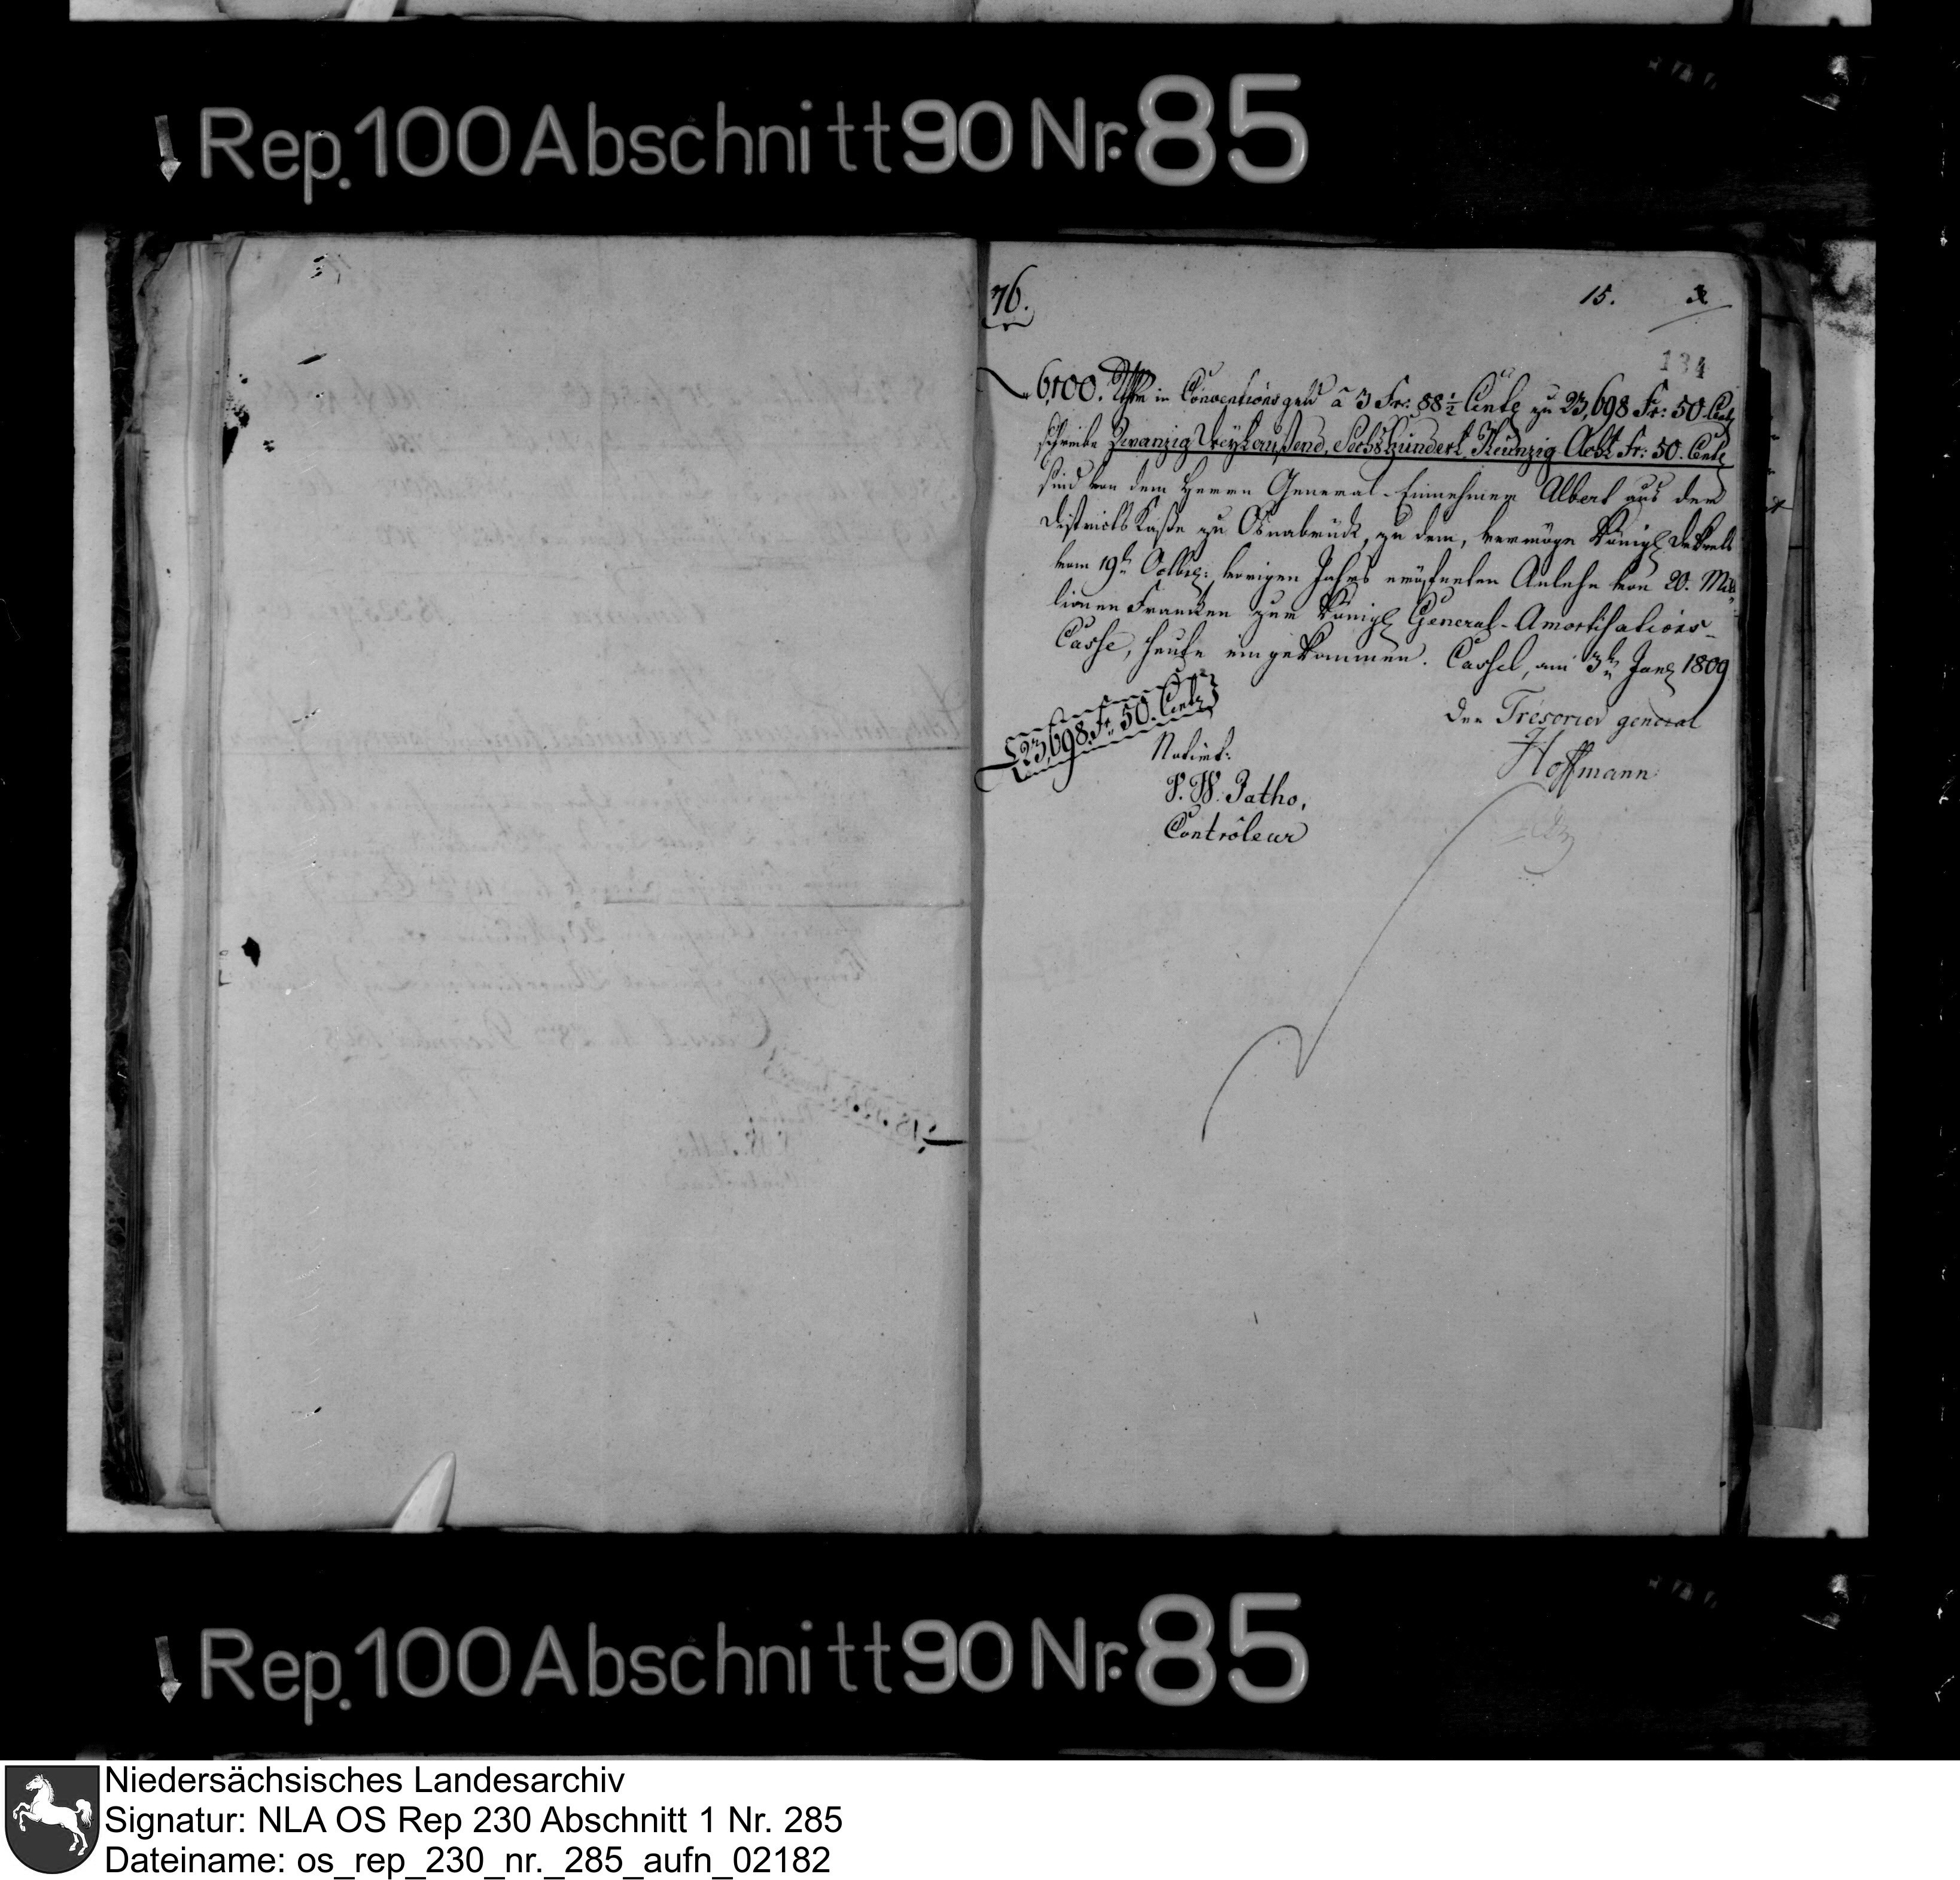 Rep. 100 Abschnitt 90 Nr. 85
76.
15.
134
6,100. Rthlr in Conventionsgeld a 3 Fr: 88 1/2 Cents zu 23,698 Fr: 50. Cents
schreibe Zwanzig Dreytaußend, Sechshundert, Neunzig Acht Fr: 50. Cents
sind von dem Herrn General-Einnehmer Albert aus der
Districts Kaße zu Osnabrück, zu dem, vermöge Königl. Dekrets
vom 19t. Octbr: vorigen Jahrs eröfneten Anlehn von 20. Mil-
lionen Franken zur Königl. General-Amortisations-
Casse, heute eingekommen. Cassel, am 3t. Jan. 1809
Der Trésorier general
Hoffmann
23,698. Fr. 50. Cents
Notirt:
P. W. Patho,
Contrôleur
Rep. 100 Abschnitt 90 Nr. 85
Niedersächsisches Landesarchiv
Signatur: NLA OS Rep 230 Abschnitt 1 Nr. 285
Dateiname: os_rep_230_nr._285_aufn_02182